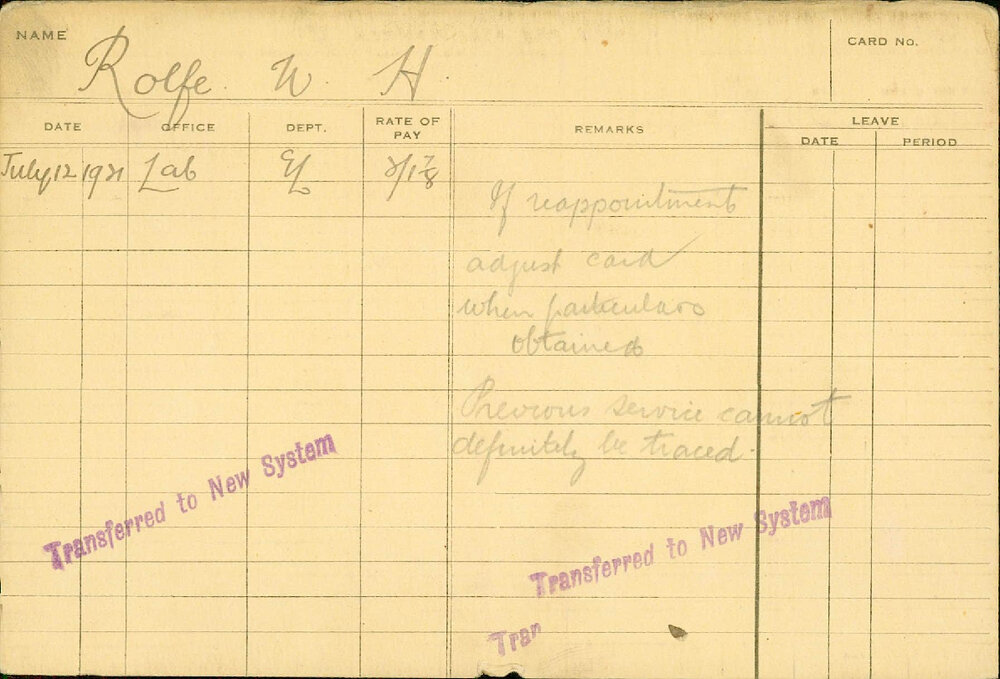 NAME Rolfe W. H. CARD No.
DATE OFFICE DEPT. RATE OF PAY REMARKS LEAVE
DATE PERIOD
July 12 1921 Lab EL
If reappointment
adjust card
when particulars
obtained
Previous service cannot
definitely be traced.
Transferred to New System
Transferred to New System
Tran